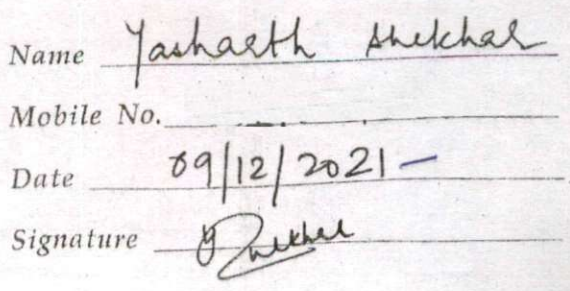 Name Yasharth Shekhar
Mobile No.
Date 09/12/2021 -
Signature